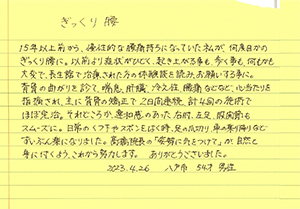 ぎっくり腰
15年以上前から、慢性的な腰痛持ちになっていた私が、何度目かの
ぎっくり腰に。以前より症状がひどく、起き上がる事も、歩く事も、何もかも
大変で、長生館で治療された方の体験談を読み、お願いする事に。
背骨の曲がりを診て、喘息、肝臓、冷え性、腰痛などなど、心当たりを
指摘され、主に背骨の矯正で2日間連続、計4回の施術で
ほぼ完治。それどころか、違和感のあった右肘、左足、股関節も
スムーズに。日常のくつ下やズボンをはく時、足の爪切り、車の乗り降りなど
ずいぶん楽になりました。高橋院長の「姿勢に気をつけて」が自然と
身に付くよう、これから努力します。ありがとうございました。
2023.4.26 八戸市 54才 男性